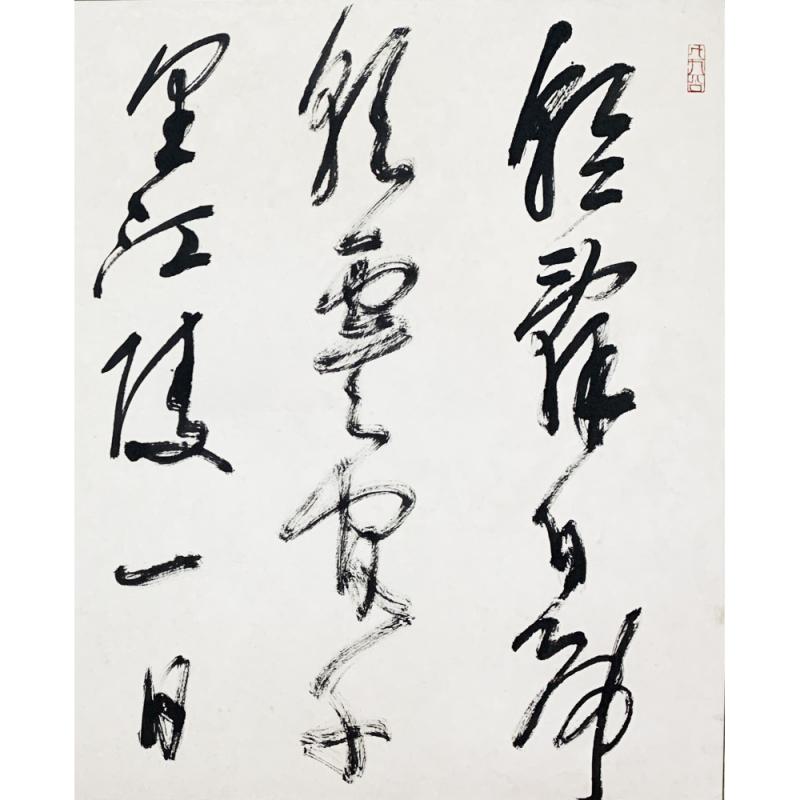 朝辭白帝
彩雲間千
里江陵一日